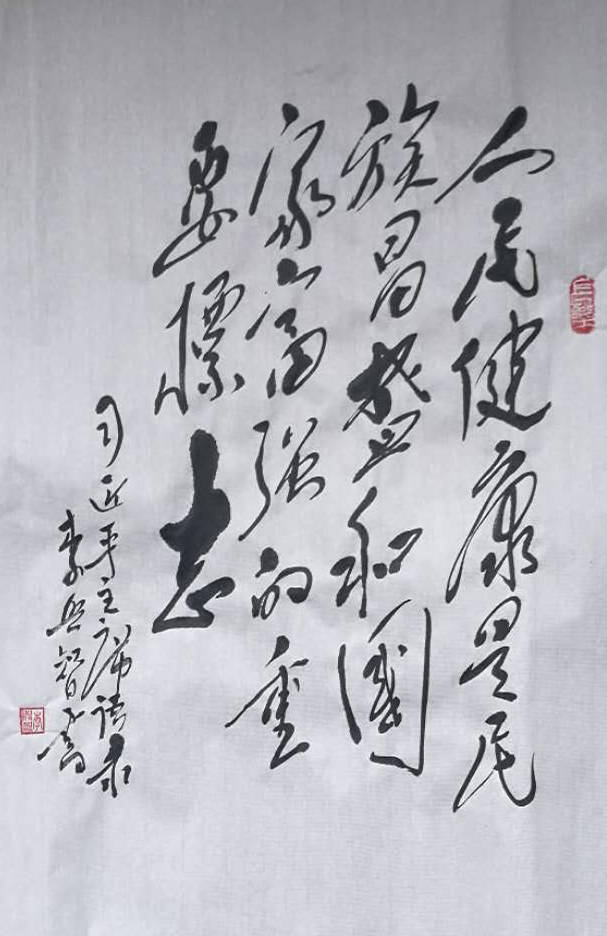 人民健康是民
族昌盛和國
家富强的重
要標志
习近平主席语录
李兴智書